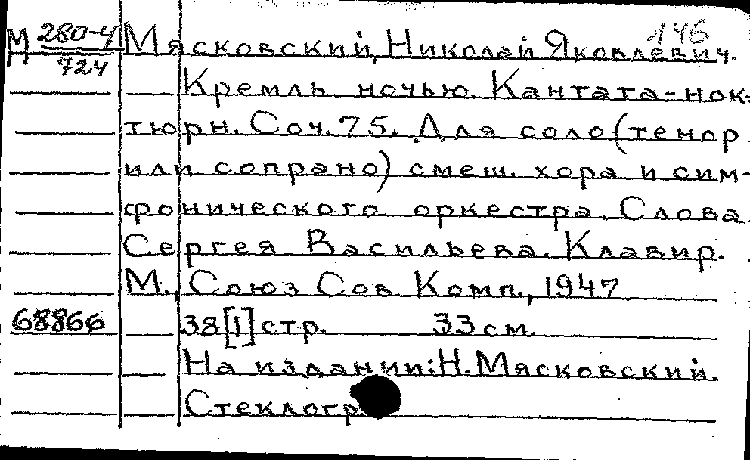 М 280-4 Мясковский, Николай Яковлевич. 146
724
Кремль ночью. Кантата-нок-
тюрн. Соч. 75. Для соло (тенор
или сопрано) смеш. хора и сим-
фонического оркестра. Слова
Сергея Васильева. Клавир.
М., Союз Сов Комп., 1947
68866 38[1] стр. 33 см.
На издании: Н. Мясковский.
Стеклогр